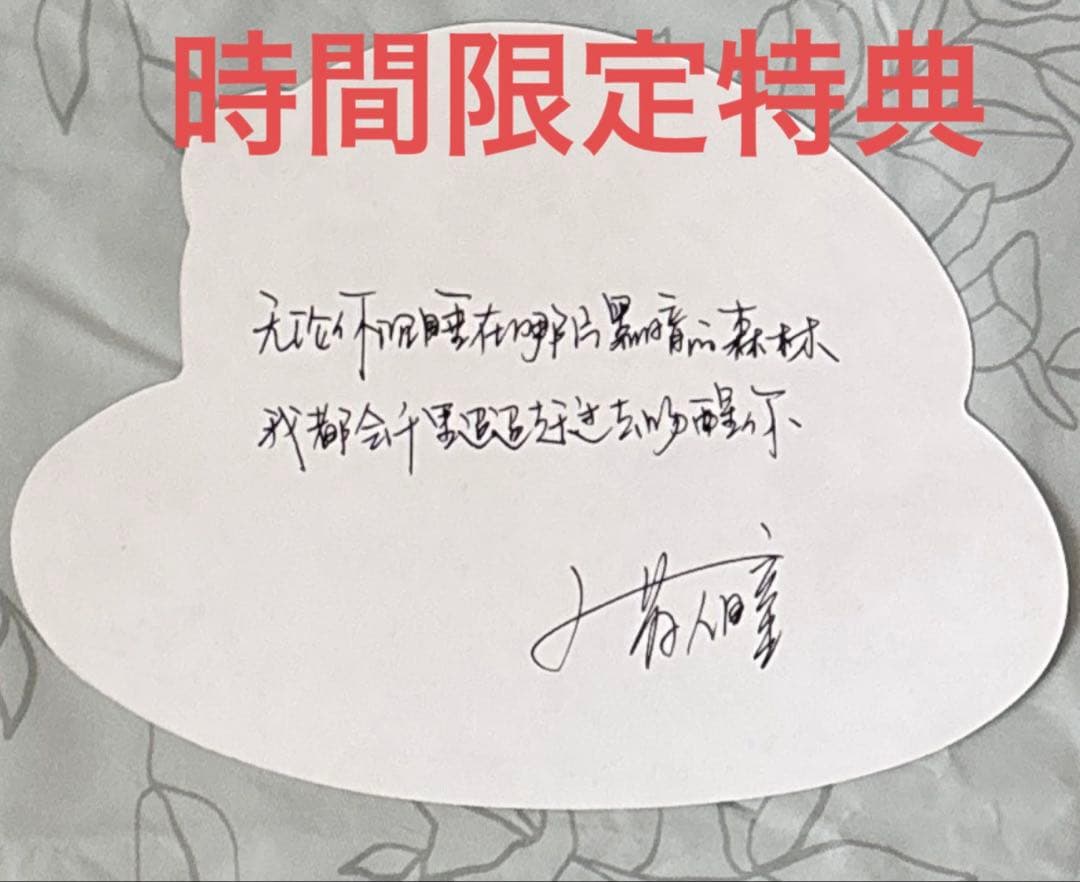 時間限定特典
无论你沉睡在哪片黑暗的森林
我都会千里迢迢赶过去吻醒你